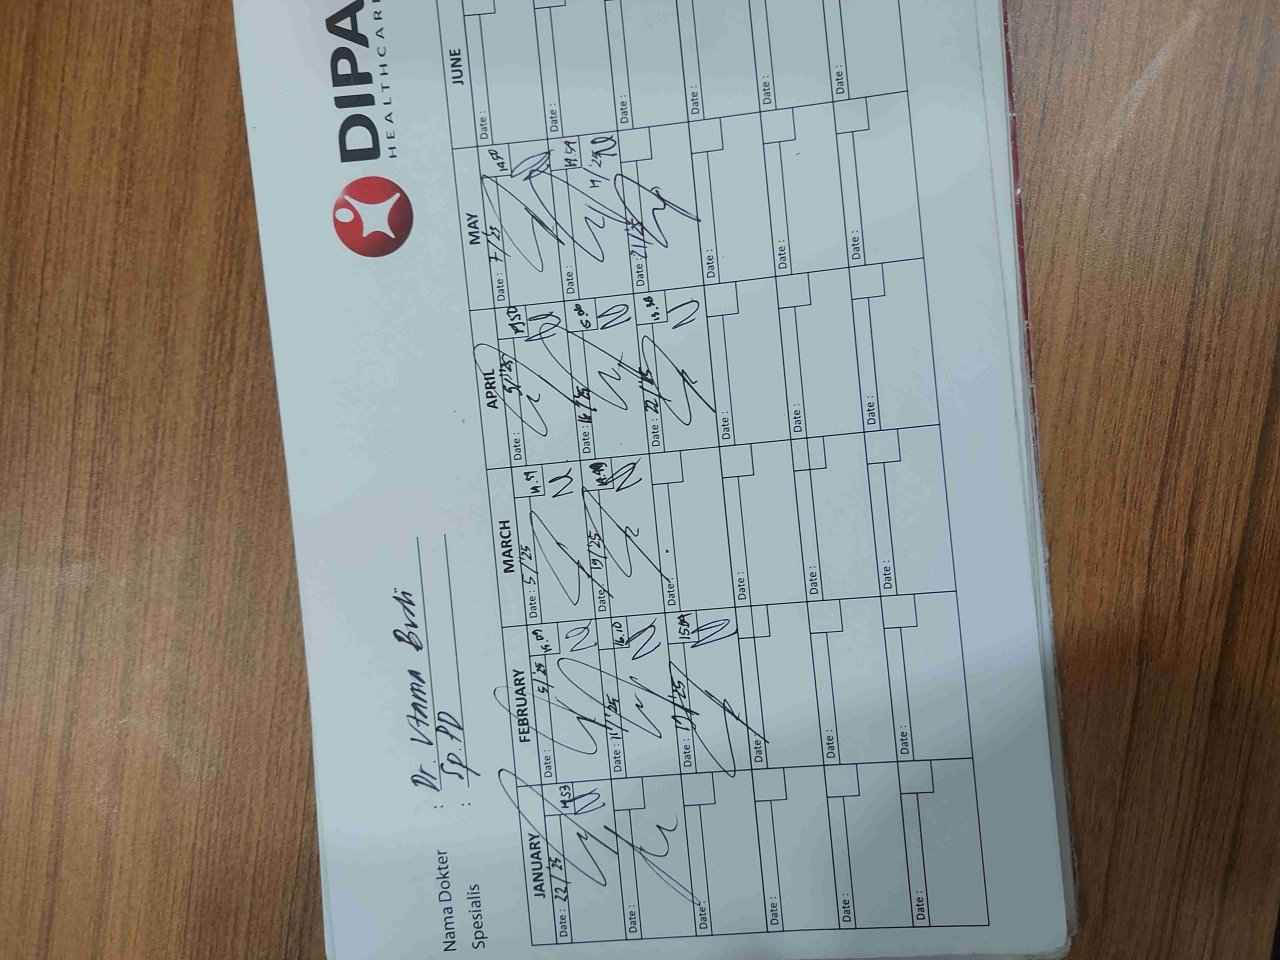 DIPA
HEALTHCAR
Nama Dokter : Dr. Utama Budi
Spesialis : Sp. PD
JANUARY FEBRUARY MARCH APRIL MAY JUNE
Date : 22/'25 14.53 Date : 5/'25 15.09 Date : 5/'25 14.51 Date : 5/'25 14.50 Date : 7/'25 14.50 Date :
Date : Date : 11/'25 16.10 Date : 19/25 14.49 Date : 16/'25 15.00 Date : 14/'25 14.59 Date :
Date : Date : 19/'25 15.09 Date : Date : 22/'25 13.38 Date : 21/'25 Date :
Date : Date : Date : Date : Date : Date :
Date : Date : Date : Date : Date : Date :
Date : Date : Date : Date : Date : Date :